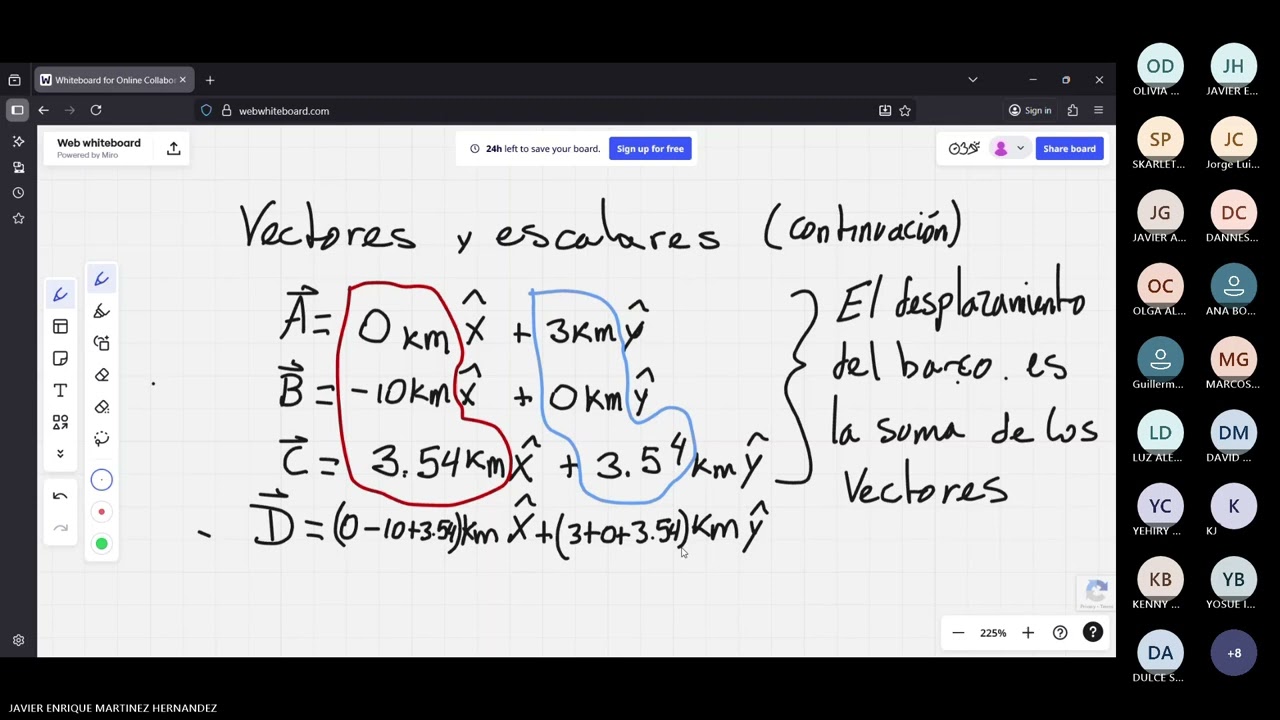 Whiteboard for Online Collabo
webwhiteboard.com
Sign in
Web whiteboard
Powered by Miro
24h left to save your board.
Sign up for free
Share board
Vectores y escalares (continuación)
A⃗ = 0 km x̂ + 3 km ŷ
B⃗ = -10 km x̂ + 0 km ŷ
C⃗ = 3.54 km x̂ + 3.54 km ŷ
D⃗ = (0-10+3.54) km x̂ + (3+0+3.54) km ŷ
El desplazamiento
del barco. es
la suma de los
Vectores
Privacy - Terms
225%
OD
OLIVIA ...
JH
JAVIER E...
SP
SKARLET...
JC
Jorge Lui...
JG
JAVIER A...
DC
DANNES...
OC
OLGA AL...
ANA BO...
Guillerm...
MG
MARCOS...
LD
LUZ ALE...
DM
DAVID ...
YC
YEHIRY ...
K
KJ
KB
KENNY ...
YB
YOSUE I...
DA
DULCE S...
+8
JAVIER ENRIQUE MARTINEZ HERNANDEZ